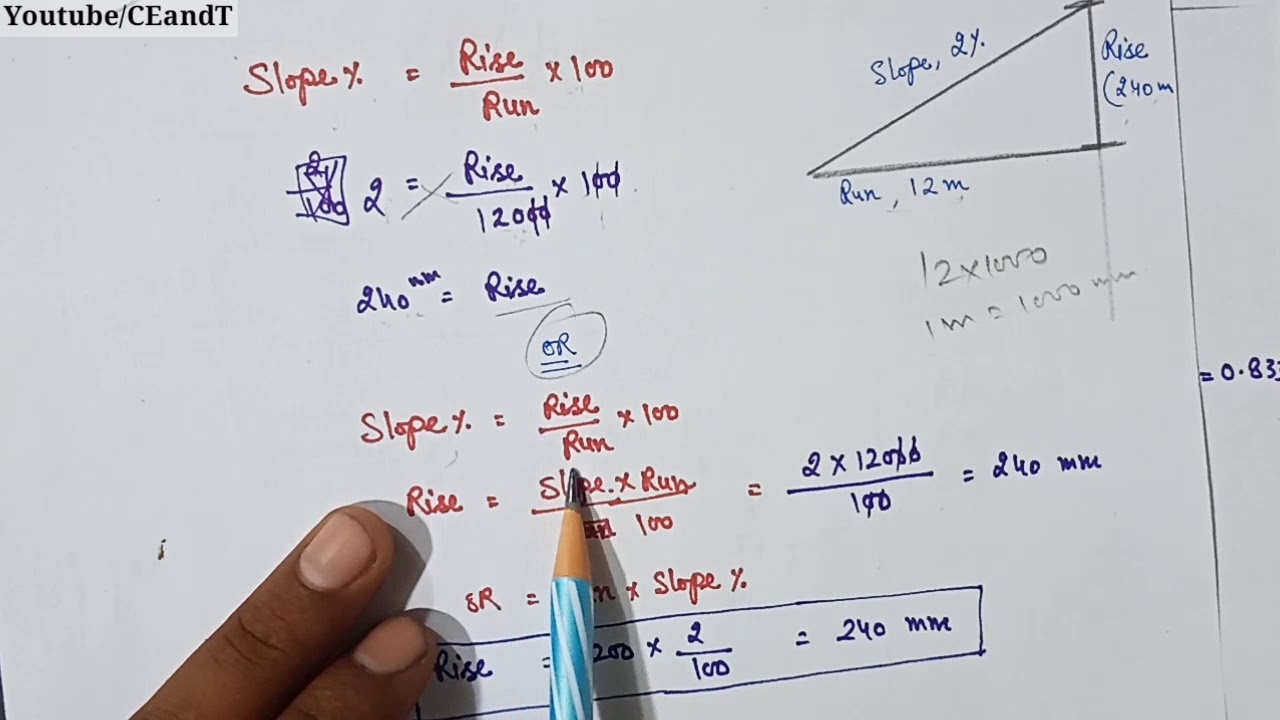 Youtube/CEandT
Slope% = Rise/Run × 100
2 = Rise/12000 × 100
240 mm = Rise
OR
Slope% = Rise/Run × 100
Rise = Slope. × Run/100 = 2 × 12000/100 = 240 mm
OR = × Slope%
Rise = 200 × 2/100 = 240 mm
Slope, 2%
Rise
(240 m
Run, 12 m
12×1000
1m = 1000 mm
= 0.833